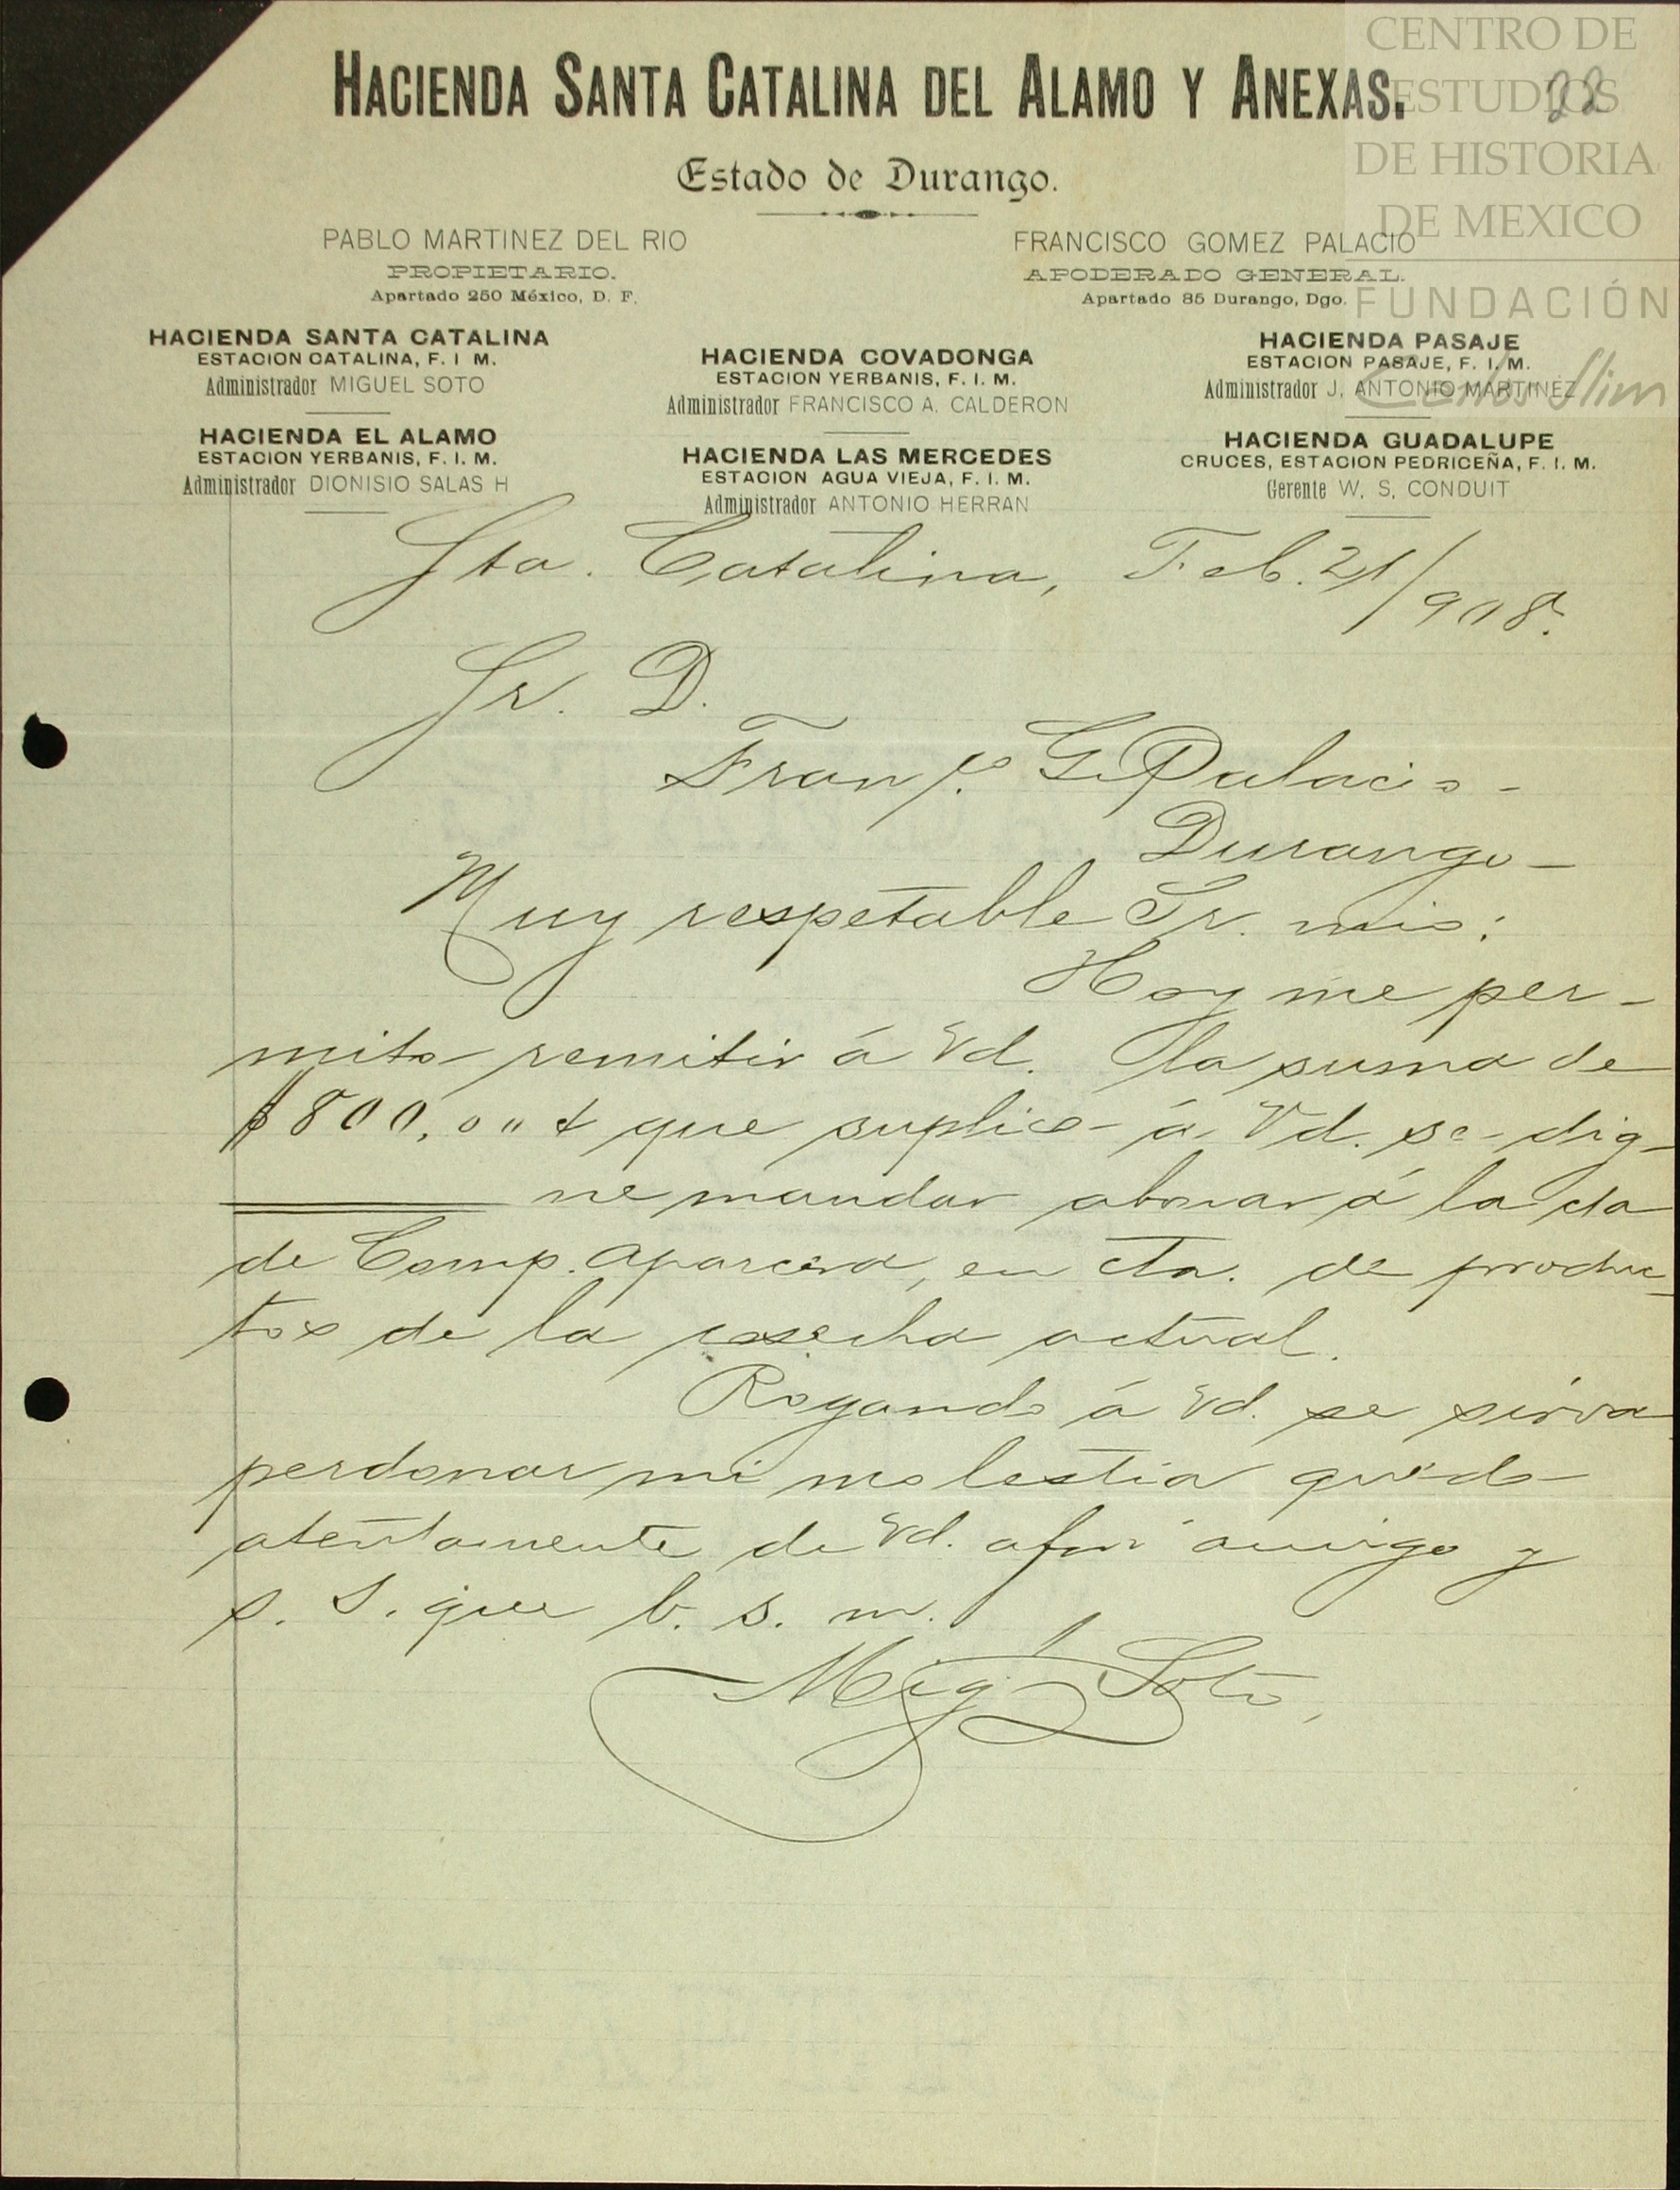 CENTRO DE
ESTUDIOS
DE HISTORIA
DE MEXICO
FUNDACIÓN
Carlos Slim
22
HACIENDA SANTA CATALINA DEL ALAMO Y ANEXAS.
Estado de Durango.
PABLO MARTINEZ DEL RIO
PROPIETARIO.
Apartado 250 México, D. F.
FRANCISCO GOMEZ PALACIO
APODERADO GENERAL.
Apartado 85 Durango, Dgo.
HACIENDA SANTA CATALINA
ESTACION CATALINA, F. I M.
Administrador MIGUEL SOTO
HACIENDA EL ALAMO
ESTACION YERBANIS, F. I. M.
Administrador DIONISIO SALAS H
HACIENDA COVADONGA
ESTACION YERBANIS, F. I. M.
Administrador FRANCISCO A. CALDERON
HACIENDA LAS MERCEDES
ESTACION AGUA VIEJA, F. I. M.
Administrador ANTONIO HERRAN
HACIENDA PASAJE
ESTACION PASAJE, F. I. M.
Administrador J. ANTONIO MARTINEZ
HACIENDA GUADALUPE
CRUCES, ESTACION PEDRICEÑA, F. I. M.
Gerente W. S. CONDUIT
Sta. Catalina, Feb. 21/908.
Sr. D.
Franco. G. Palacio-
Durango-
Muy respetable Sr. mio:
Hoy me per-
mito remitir á Vd. la suma de
$800,00 que suplico á Vd. se dig-
ne mandar abonar á la cta
de Comp. Aparcera, en cta. de produc-
tos de la cosecha actual.
Rogando á Vd. se sirva
perdonar mi molestia quedo
atentamente de Vd. afmo amigo y
s. S. que b. s. m.
Migl Soto,